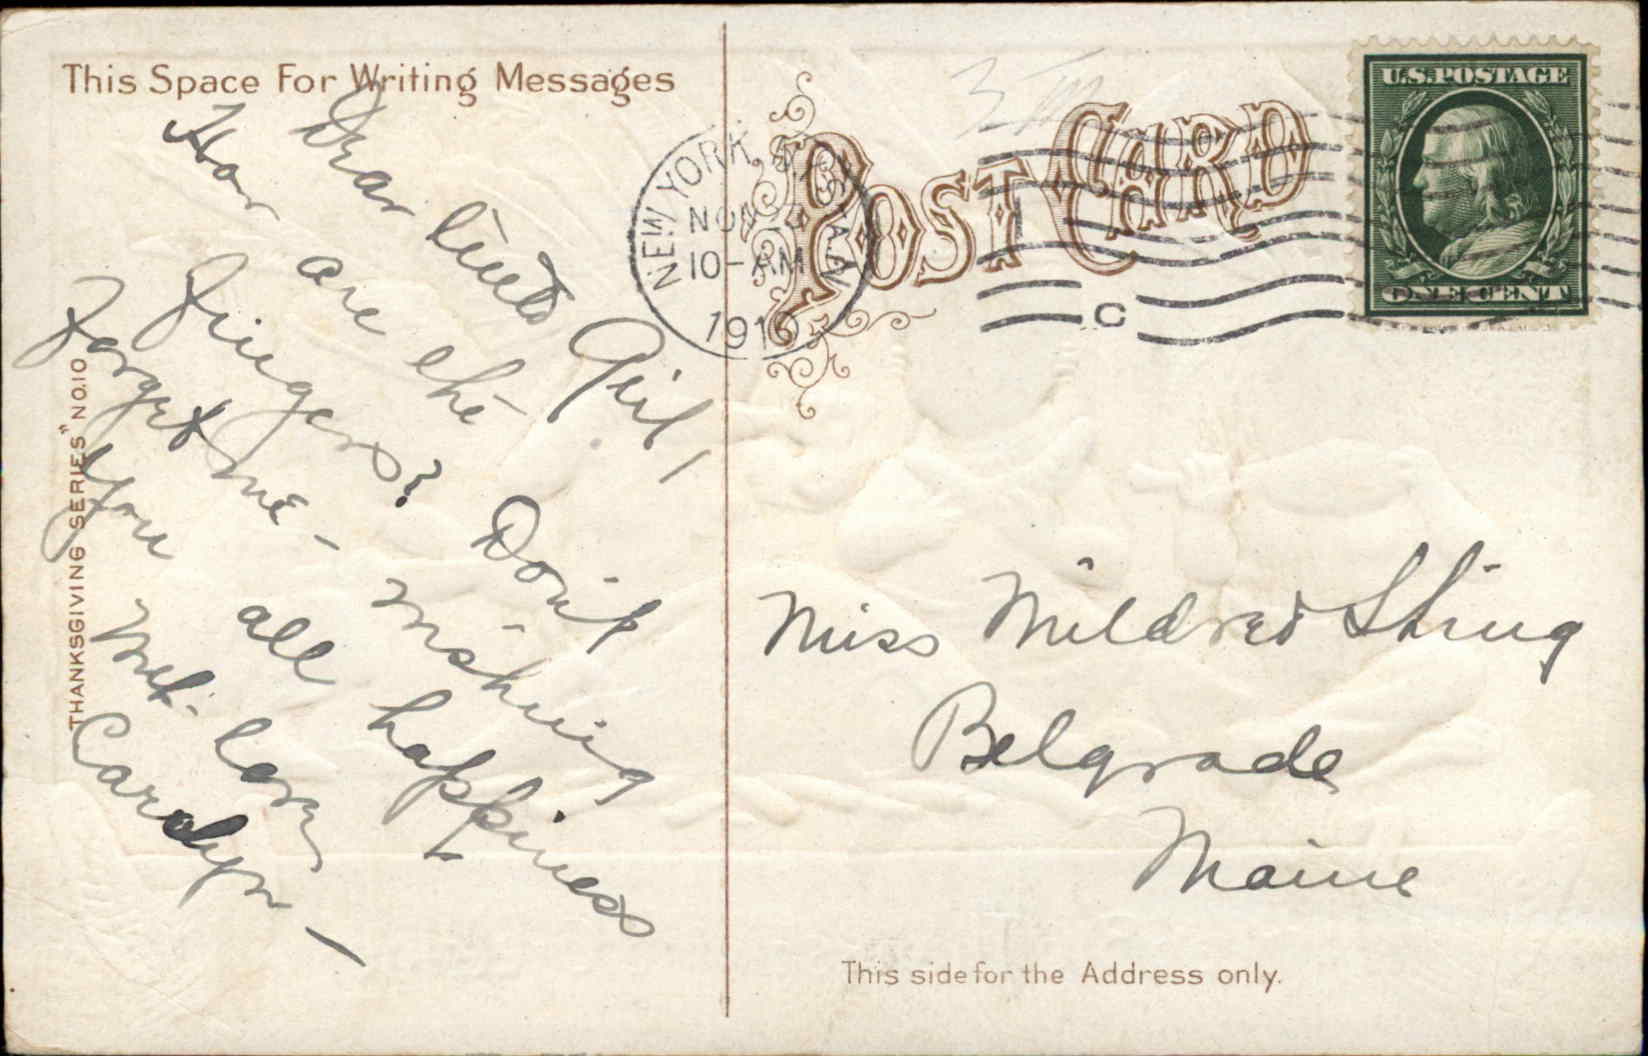 This Space For Writing Messages
Dear little Girl,
How are the
fingers? Don't
forget me - wishing
you all happiness
Carolyn -
THANKSGIVING SERIES" NO.10
POST CARD
NEW YORK, N.Y. STA.
NOV
10-AM
1910
C
U.S. POSTAGE
ONE CENT
Miss Mildred
Belgrade
Maine
This side for the Address only.